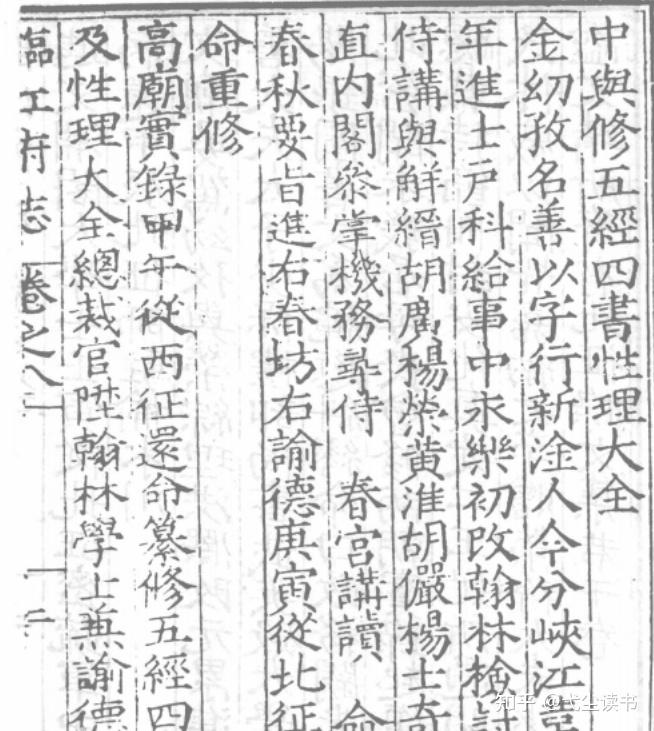 中與修五經四書性理大全
金幼孜名善以字行新淦人今分峽江
年進士戸科給事中永樂初改翰林檢討
侍講與解縉胡廣楊榮黃淮胡儼楊士奇
直內閣叅掌機務尋侍 春宮講讀 命
春秋要旨進右春坊右諭德庚寅從北征
命重修
高廟實錄甲午從西征還命纂修五經四
及性理大全總裁官陞翰林學士兼諭德
臨江府志 卷之八 二
知乎 @弋尘读书